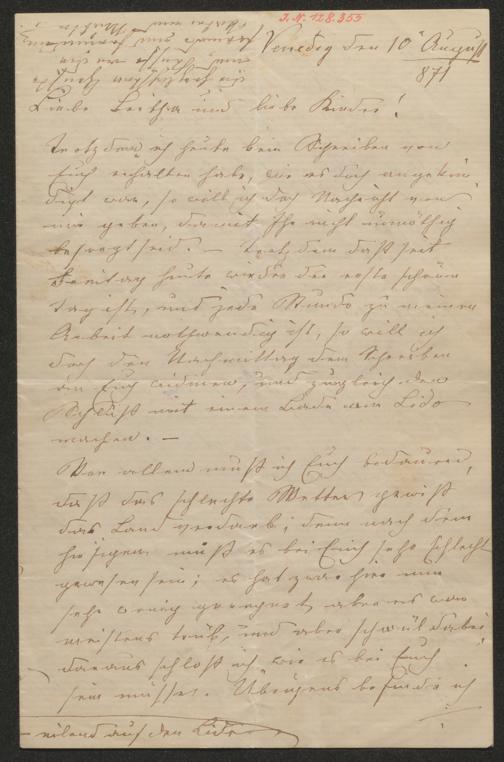 J. N. 128.355
Venedig den 10 August
871
Liebe Bertha und liebe Kinder!
Trotzdem ich heute kein Schreiben von
Euch erhalten habe, wie es doch angekün
digt war, so will ich doch Nachricht von
mir geben, damit Ihr nicht unnöthig
besorgt seid. — Trotzdem daß seit
Freitag heute wieder der erste schöne
Tag ist, und jede Stunde zu meiner
Arbeit nothwendig ist, so will ich
doch den Nachmittag dem Schreiben
an Euch widmen, und zugleich den
Schluß mit einem Bade am Lido
machen. —
Vor allem muß ich Euch bedauern,
daß das schlechte Wetter gewiß
das Land verdarb; denn nach dem
hiesigen muß es bei Euch sehr schlecht
gewesen sein; es hat zwar hier nur
sehr wenig geregnet, aber es war
meistens trüb, und aber schwül dabei
daraus schloß ich, wie es bei Euch
sein müsse. Übrigens befinde ich
eilend auf den Lido